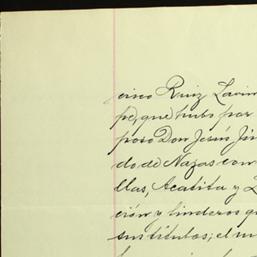 cisco Ruiz Lavin
pe, que hubo por
poso Don Jesús Jim
do de Nazas con
llas, Acatita y L
ción y linderos q
sus títulos; el m